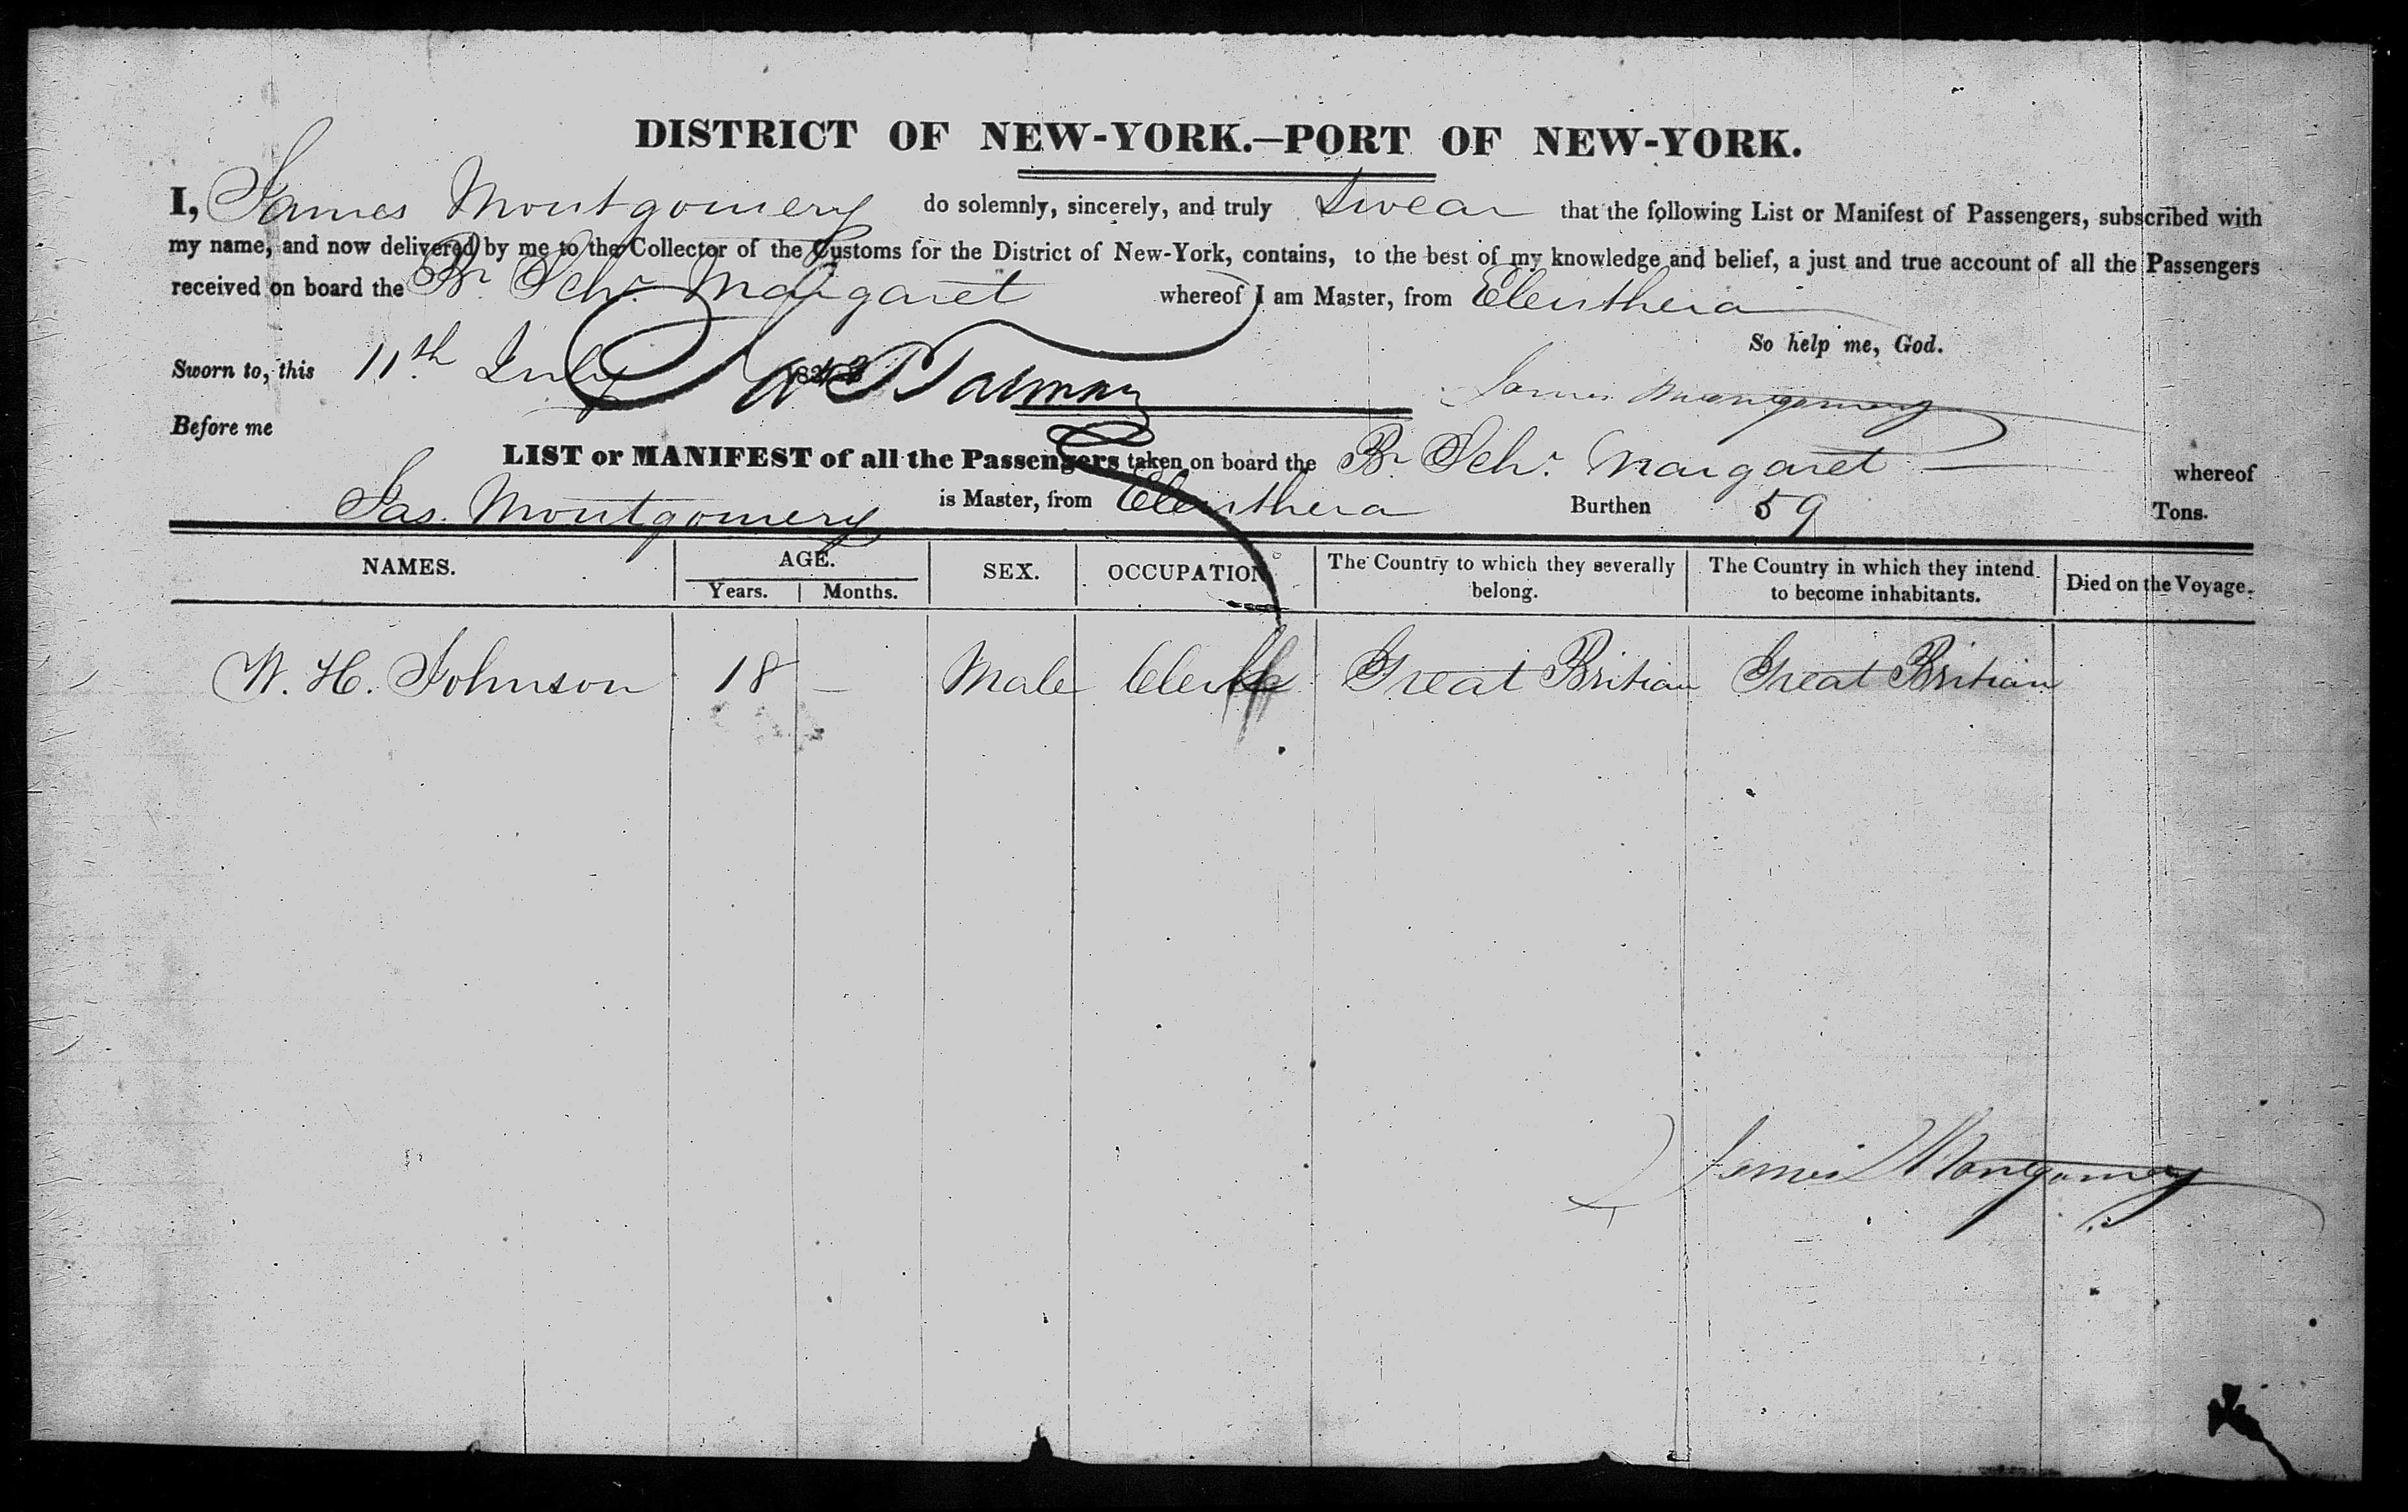 DISTRICT OF NEW-YORK.—PORT OF NEW-YORK.
I, James Montgomery do solemnly, sincerely, and truly Swear that the following List or Manifest of Passengers, subscribed with
my name, and now delivered by me to the Collector of the Customs for the District of New-York, contains, to the best of my knowledge and belief, a just and true account of all the Passengers
received on board the Br. Schr. Margaret whereof I am Master, from Eleuthera
So help me, God.
Sworn to, this 11th July
James Montgomery
Before me
LIST or MANIFEST of all the Passengers taken on board the Br Schr. Margaret whereof
Jas. Montgomery is Master, from Eleuthera Burthen 59 Tons.
NAMES. AGE. SEX. OCCUPATION The Country to which they severally belong. The Country in which they intend to become inhabitants. Died on the Voyage.
Years. Months.
W. H. Johnson 18 — Male Clerk Great Britian Great Britian
James Montgomery